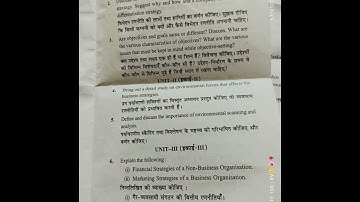 2. Discuss
strategy. Suggest why and how a company
differentiation strategy.
विभेदन रणनीति की लागतों तथा हानियों का वर्णन कीजिए। सुझाव दीजिए
कि किसी कम्पनी को क्यों और कैसे विभेदन रणनीति अपनानी चाहिए।
3. Are objectives and goals same or different? Discuss. What are the
various characteristics of objectives? What are the various
issues that must be kept in mind while objective-setting?
उद्देश्य तथा लक्ष्य एक ही हैं या भिन्न हैं? विवेचना कीजिए। उद्देश्यों
की विभिन्न विशेषताएँ कौन-कौन सी हैं? उद्देश्य-निर्धारण के समय
कौन-कौन से विभिन्न मुद्दे हैं जिन्हें ध्यान में रखना चाहिए?
UNIT-II (इकाई-II)
4. Bring out a detail study on environmental forces that affects the
business strategies.
उन पर्यावरणीय शक्तियों का विस्तृत अध्ययन प्रस्तुत कीजिए, जो व्यवसाय
रणनीतियों को प्रभावित करती हैं।
5. Define and discuss the importance of environmental scanning and
analysis.
पर्यावरणीय स्कैनिंग तथा विश्लेषण के महत्त्व को परिभाषित कीजिए और
वर्णन कीजिए।
UNIT-III (इकाई-III)
6. Explain the following :
(i) Financial Strategies of a Non-Business Organisation.
(ii) Marketing Strategies of a Business Organisation.
निम्नलिखित की व्याख्या कीजिए :
(i) गैर-व्यवसायी संगठन की वित्तीय रणनीतियाँ।